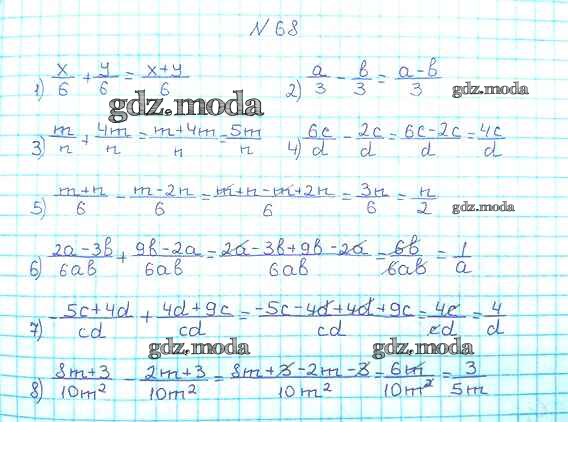 N 68
1) x/6 + y/6 = x+y/6 2) a/3 - b/3 = a-b/3 gdz.moda
gdz.moda
3) m/n + 4m/n = m+4m/n = 5m/n 4) 6c/d - 2c/d = 6c-2c/d = 4c/d
5) m+n/6 - m-2n/6 = m+n-m+2n/6 = 3n/6 = n/2 gdz.moda
6) 2a-3b/6ab + 9b-2a/6ab = 2a-3b+9b-2a/6ab = 6b/6ab = 1/a
7) - 5c+4d/cd + 4d+9c/cd = -5c-4d+4d+9c/cd = 4c/cd = 4/d
gdz.moda gdz.moda
8) 8m+3/10m² - 2m+3/10m² = 8m+3-2m-3/10m² = 6m/10m² = 3/5m